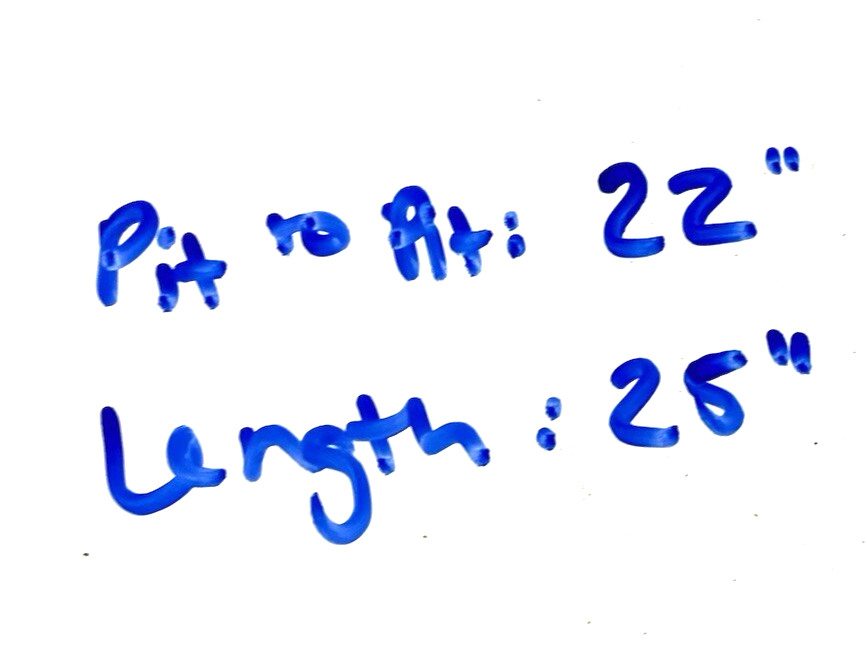 Pit to Pit: 22"
Length: 25"